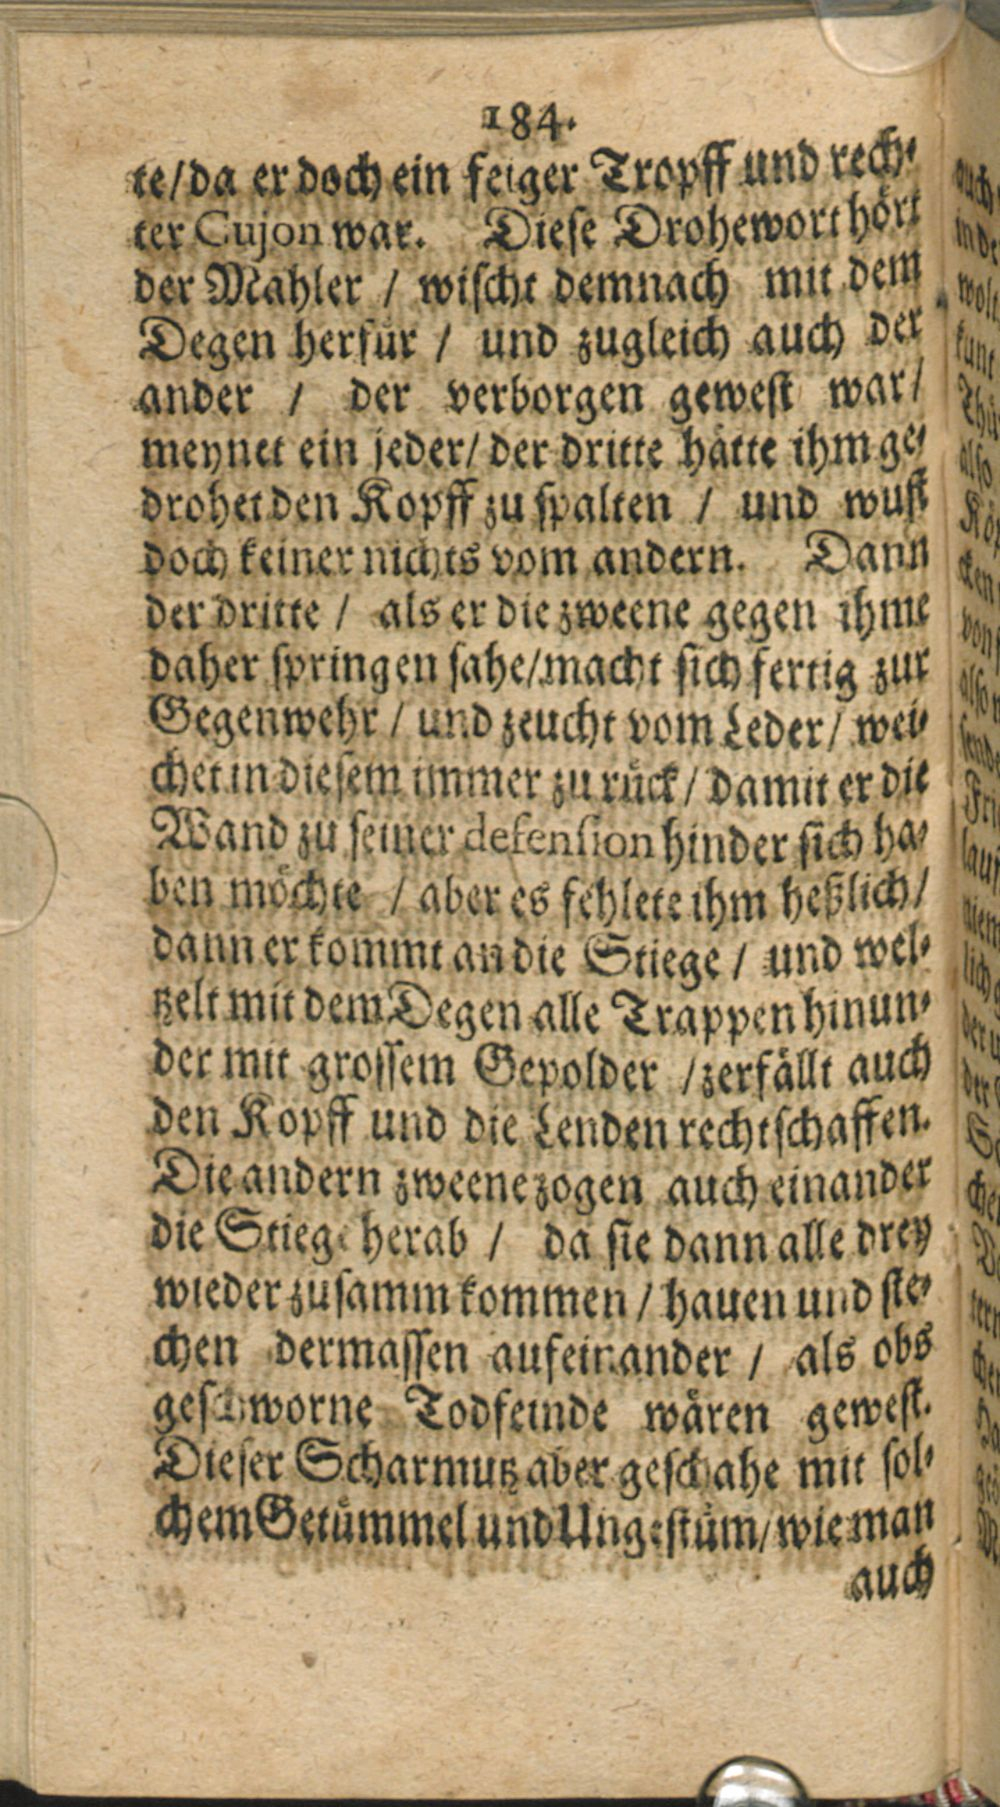 184.
te/da er doch ein feiger Tropff und rech-
ter Cujon war. Diese Drohewort hört
der Mahler / wischt demnach mit dem
Degen herfür / und zugleich auch der
ander / der verborgen gewest war/
meynet ein jeder/ der dritte hätte ihm ge-
drohet den Kopff zu spalten / und wust
doch keiner nichts vom andern. Dann
der dritte / als er die zweene gegen ihme
daher springen sahe/macht sich fertig zur
Gegenwehr / und zeucht vom Leder/ wei-
chet in diesem immer zu rück/ damit er die
Wand zu seiner defension hinder sich ha-
ben möchte / aber es fehlete ihm heßlich/
dann er kommt an die Stiege / und wel-
tzelt mit dem Degen alle Trappen hinun-
der mit grossem Gepolder /zerfällt auch
den Kopff und die Lenden rechtschaffen.
Die andern zweene zogen auch einander
die Stiege herab / da sie dann alle drey
wieder zusamm kommen / hauen und ste-
chen dermassen aufeinander / als obs
geschworne Todfeinde wären gewest.
Dieser Scharmutz aber geschahe mit sol-
chem Getümmel und Ungestüm/wie man
auch